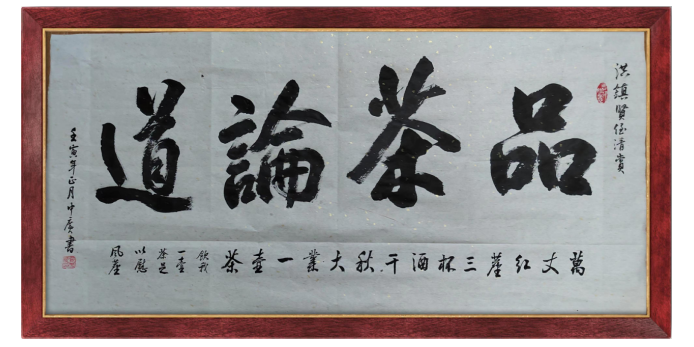 洪鎮賢侄清賞
品茶論道
萬丈紅塵三杯酒千秋大業一壺茶
飲我
一壺
茶足
以慰
風塵
壬寅年正月中广書